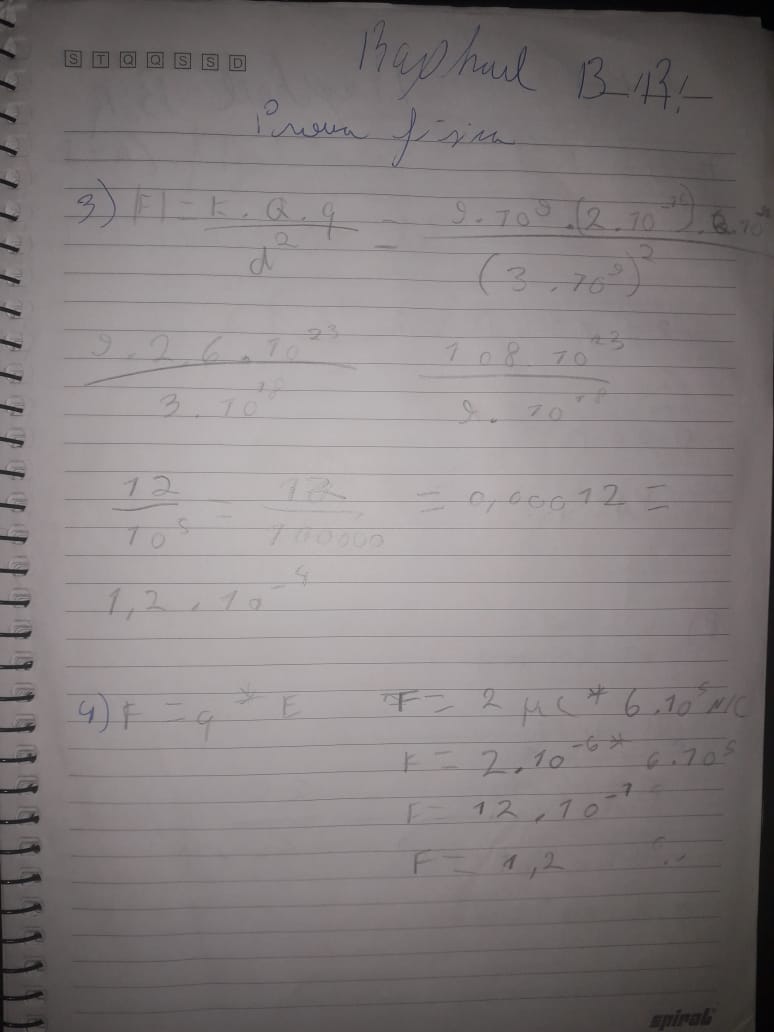 S T Q Q S S D
Raphael B.B.
Prova física
3) |F| = K . Q . q / d² = 9 . 10⁹ . (2 . 10⁻¹⁶) . 6 . 10 / (3 . 10⁹)²
9 . 2 . 6 . 10²³ / 3 . 10¹⁸   108 . 10²³ / 9 . 10¹⁸
12 / 10⁵ = 12 / 100000 = 0,00012 =
1,2 . 10⁻⁴
4) F = q * E   F = 2 μC * 6 . 10⁵ N/C
F = 2 . 10⁻⁶ * 6 . 10⁵
F = 12 . 10⁻¹
F = 1,2
spiral